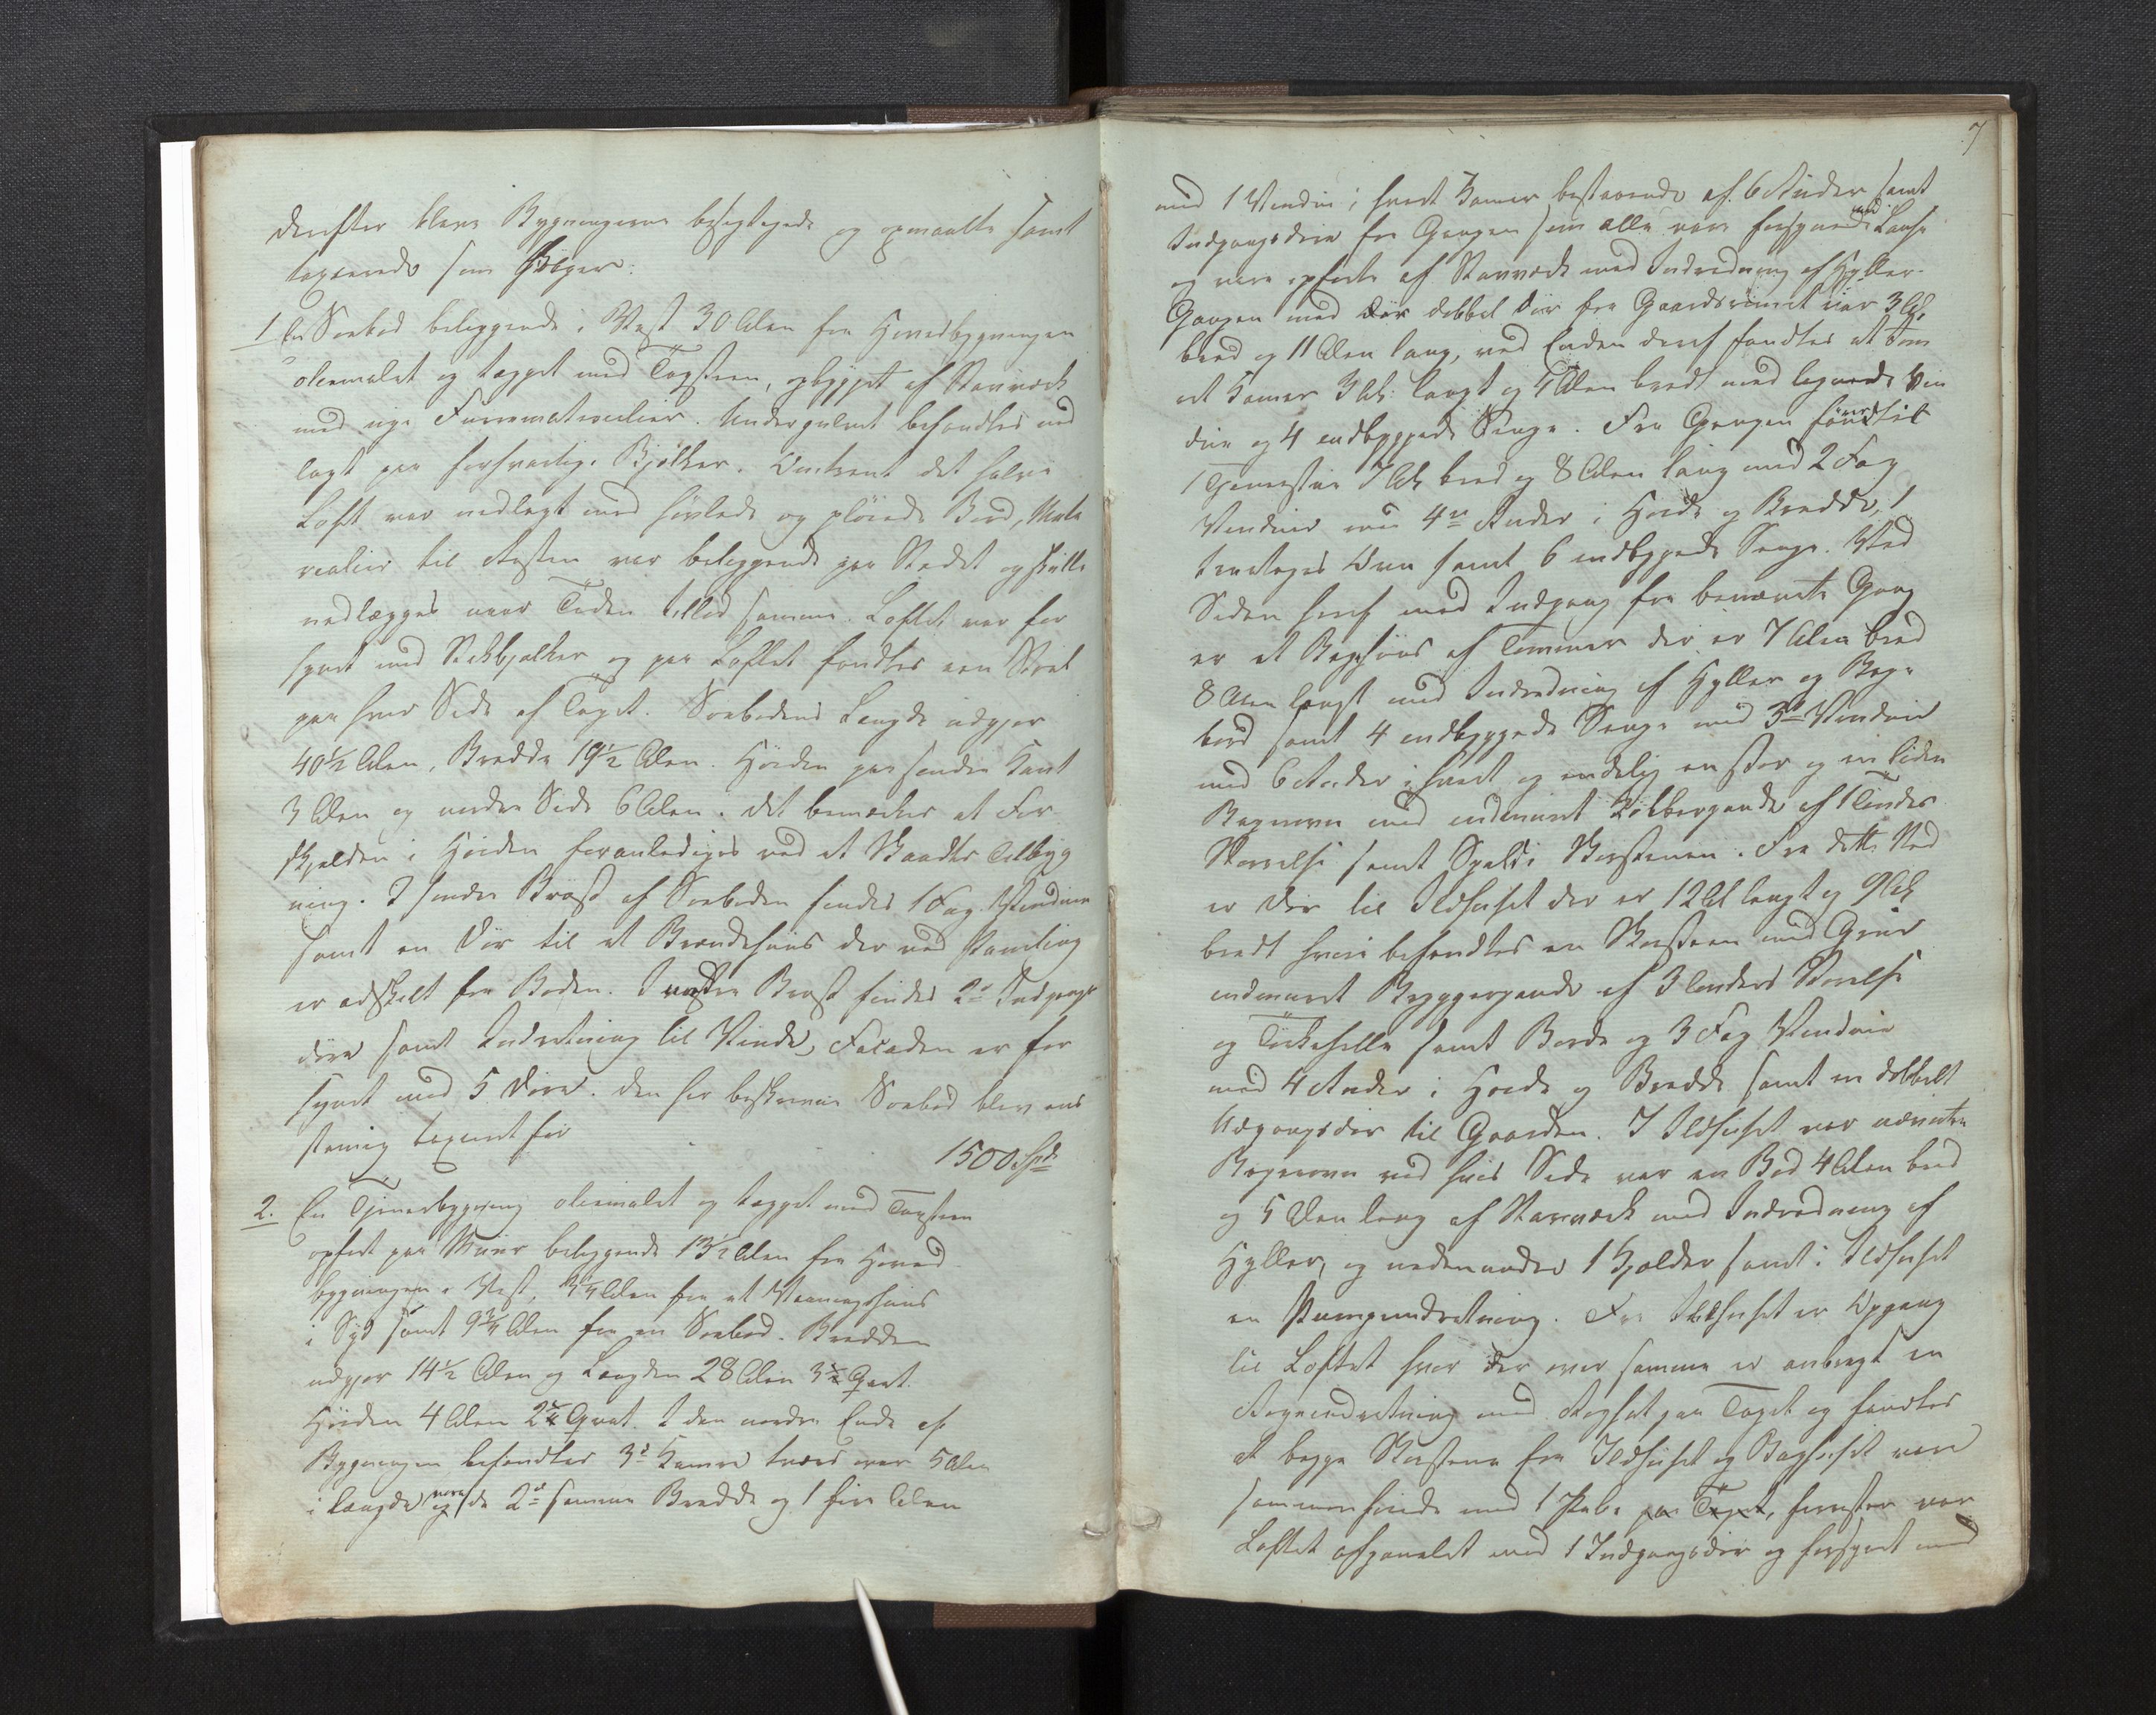 derefter bleve Bygningerne besigtigede og opmaalte samt
taxerede som følger:
1 En Søebod beliggende i Vest 30 Alen fra Hovedbygningen
oliemalet og tægget med Tagsteen, opbygget af Stavværk
med nye Furrematerialier. Undergulvet befandtes ned
lagt paa forsvarlige Bjelker. Omtrent det halve
Loft var nedlagt med høvlede og pløiede Bord, Mate
rialier til Resten var beliggende paa Stedet og skulle
nedlægges naar Tiden tillod samme. Loftet var for
synet med Stikbjelker og paa Loftet fandtes een Stræt
paa hver Side af Taget. Søebodens Længde udgjør
40½ Alen, Bredde 19½ Alen. Høiden paa søndre Kant
3 Alen og nordre Side 6 Alen. Det bemærkes at For
skjellen i Høiden foranlediges ved et Baadsc Tilbyg
ning. I søndre Brøst af Søeboden findes 1 Fag Vinduer
samt en Dør til et Brændehuus der ved Paneling
er adskilt fra Boden. I nordre Brøst findes 2de Indgangs
døre samt Indretning til Vinde, Facaden er for
synet med 5 Døre. Den her beskrevne Søebod blev ens
stemig taxeret for
1500 Spd
2. En Tjenerbygning oliemalet og tægget med Tagsteen
opført paa Muur beliggende 13½ Alen fra Hoved
bygningen i Vest, 3¼ Alen fra et Vaaningshuus
i Syd samt 9¾ Alen fra en Søebod. Bredden
udgjør 14½ Alen og Længden 28 Alen 3½ Qvart.
Høiden 4 Alen 2¼ Qvart. I den nordre Ende af
Bygningen befandtes 3de Kamre tværs over 5 Alen
i Længde vare og de 2de samme Bredde og 1 fire Alen
7
med 1 Vindue i hvert Kamer bestaaende af 6 Ruder samt
Indgangsdøre fra Gangen som alle vare forsynede med Laase
og vare opførte af Stavværk med Indredning af Hyller.
Gangen med Dør dobbel Dør fra Gaardsrumet var 3 Al.
bred og 11 Alen lang, ved Enden deraf fandtes et Tøm
ret Kamer 3 Al: langt og 4 Alen bredt med lignende Vin
due og 4 indbyggede Senge. Fra Gangen fører til
1 Tjenerstue 7 Al: bred og 8 Alen lang med 2 Fag
Vinduer med 4re Ruder i Høide og Bredde, 1
treetages Ovn samt 6 indbyggede Senge. Ved
Siden heraf med Indgang fra benævnte Gang
er et Baghuus af Tømmer der er 7 Alen bred
8 Alen langt med Indredning af Hyller og Bage
bord samt 4 indbyggede Senge med 3de Vinduer
med 6 Ruder i hvert og endelig en stor og en liden
Bagerovn med indmuret Kobbergryde af 1 Tøndes
Størrelse samt Spelds Skorstenen. Fra dette Sted
er Dør til Ildhuset der er 12 Al: langt og 9 Al:
bredt hvori befandtes en Skorsteen med Gruve
indmuret Bryggergryde af 3 Tønders Størrelse
og Tørkehelle samt Borde og 3 Fag Vinduer
med 4 Ruder i Høide og Bredde samt en dobbelt
Udgangsdør til Gaarden. I Ildhuset var nævnte
Bagerovn ved hvis Side var en Bod 4 Alen bred
og 5 Alen lang af Stavværk med Indredning af
Hyller, og nedenunder 1 Kjelder samt i Ildhuset
en Pumpeindretning. Fra Ildhuset er Opgang
til Loftet hvor der over samme er anbragt en
Røgeindretning med Røghat paa Taget og fandtes
at begge Skorstene fra Ildhuset og Baghuset vare
sammenføiede med 1 Pibe paa Taget, forresten var
Loftet afpanelet med 1 Indgangsdør og forsynet med